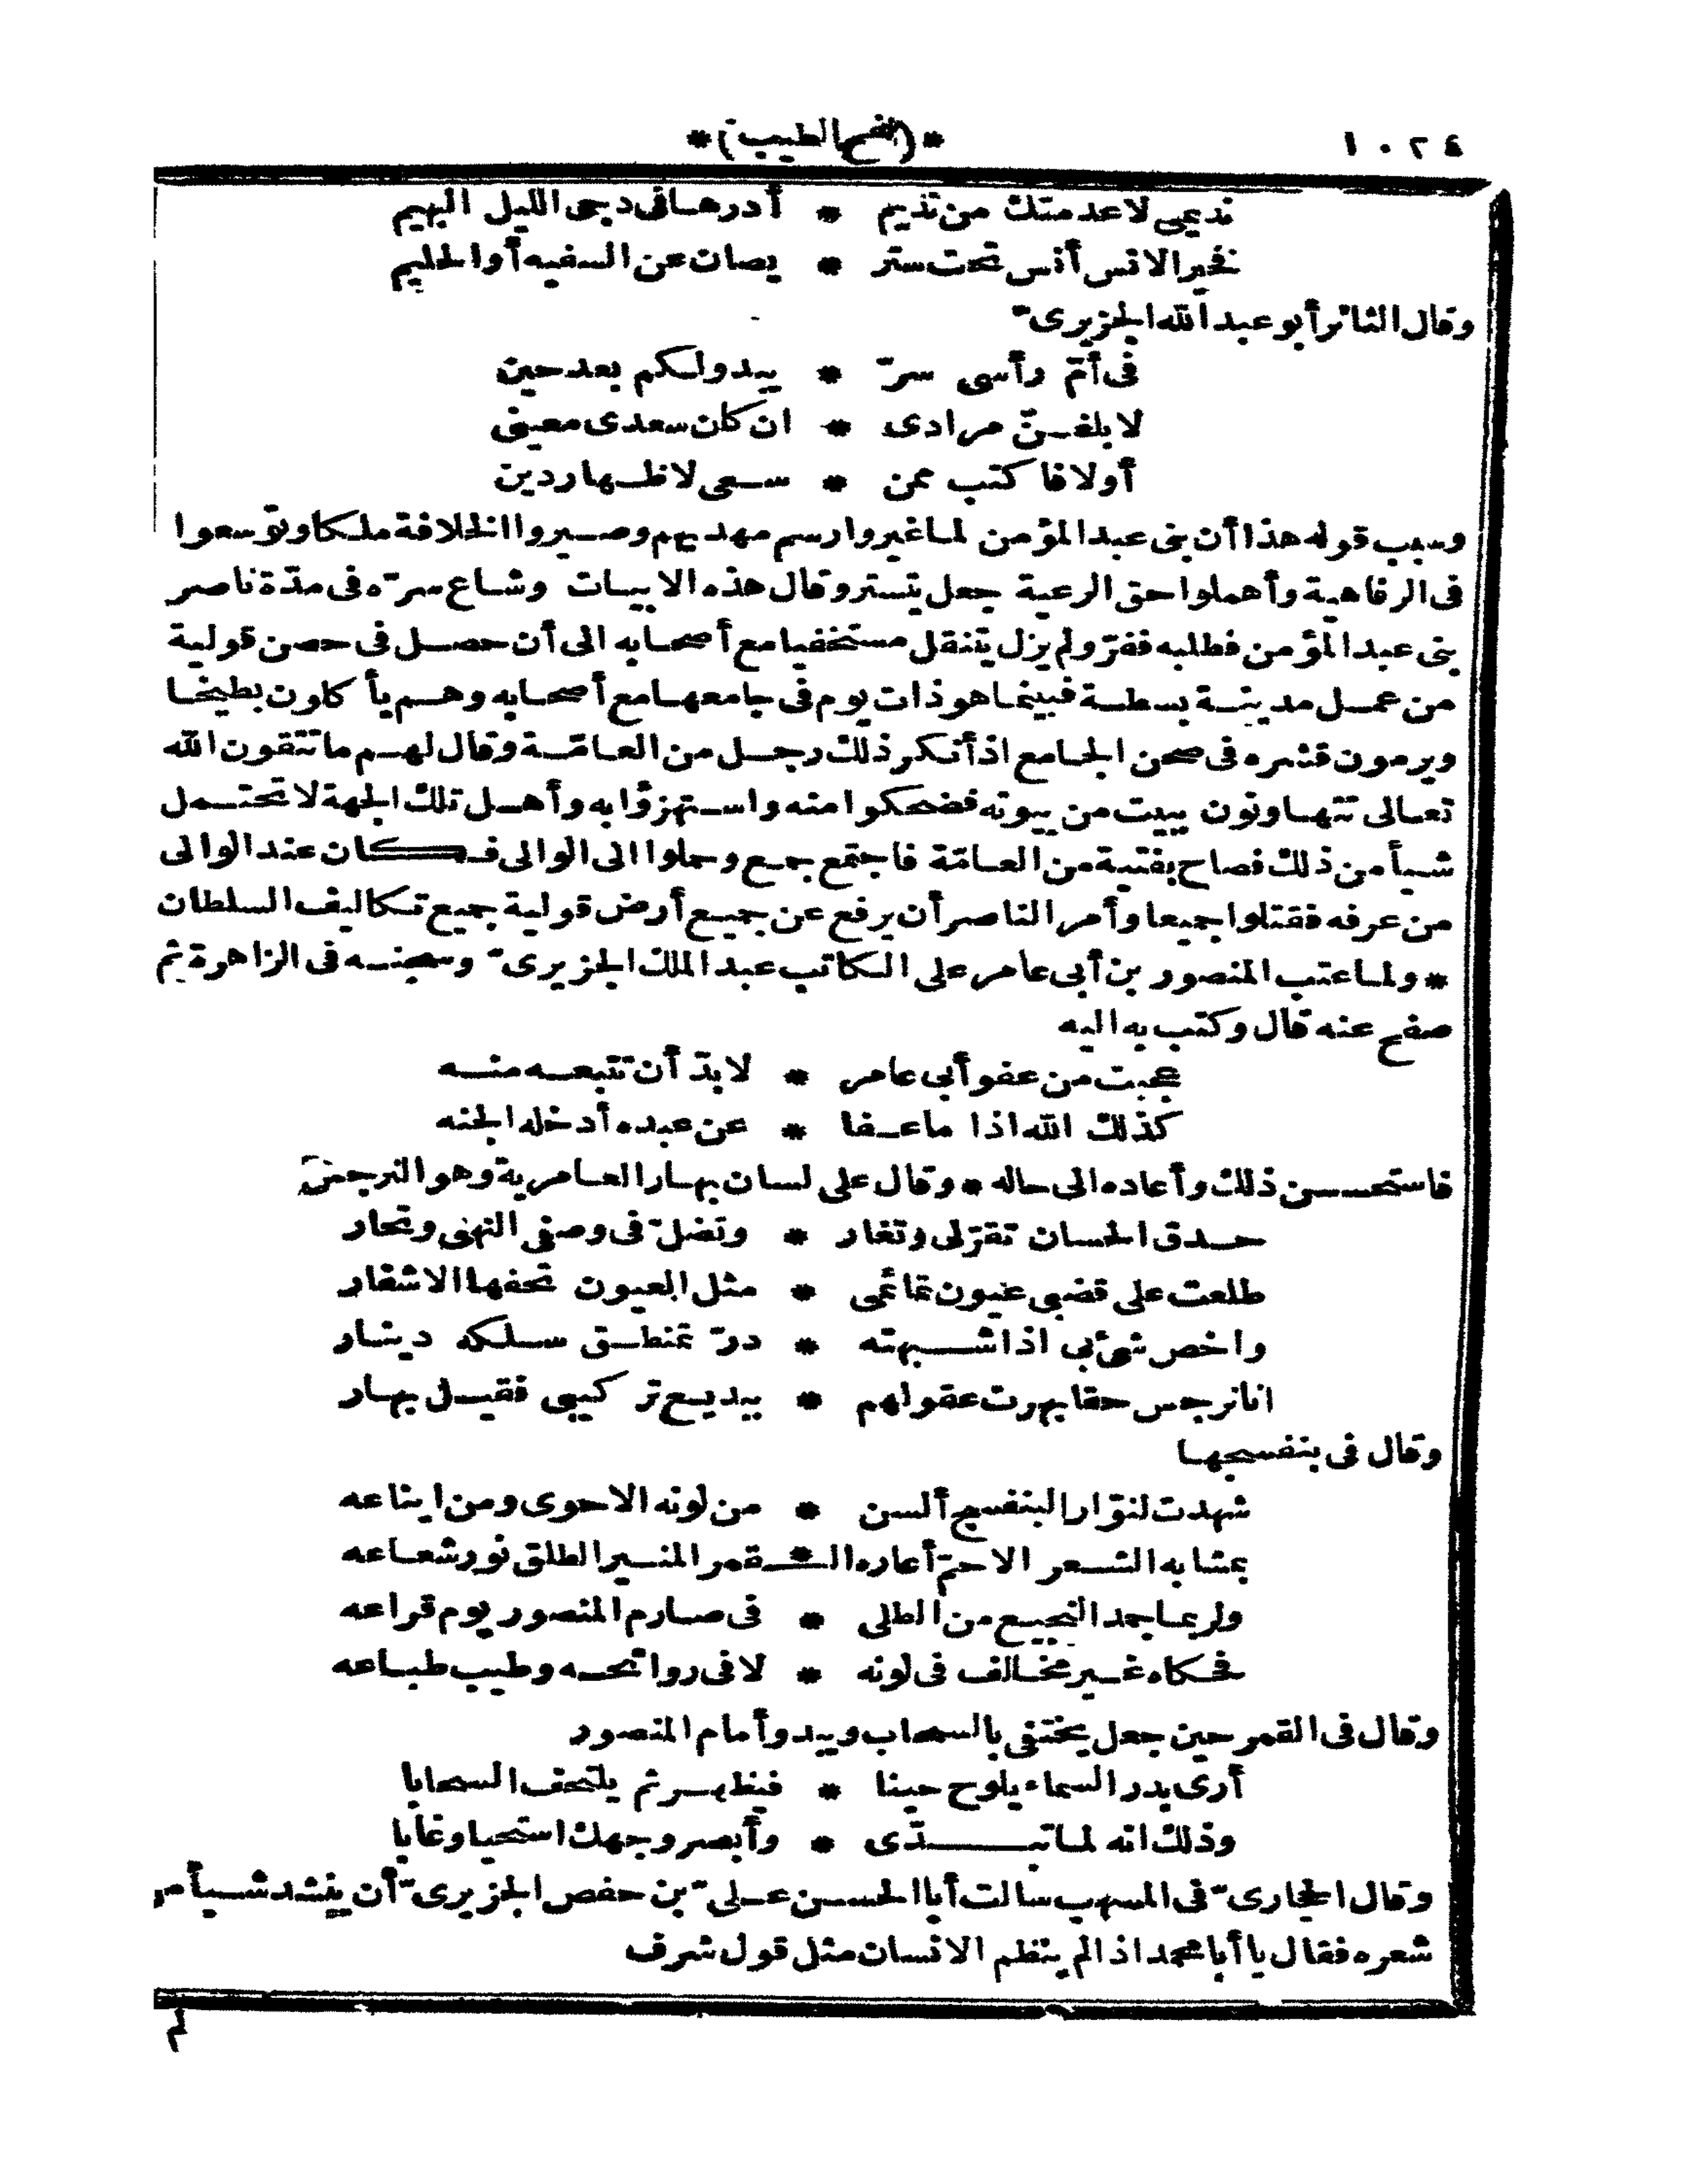 ١٠٢٤ *(نفح الطيب)*
نديمى لاعدمتك من نديم * أدرها فى دجى الليل البهيم
نخير الانس أنس تحت ستر * يصان عن السفيه أوالحليم
وقال الثائر أبو عبد الله الجزيرىّ
فى أمّ رأسى سرّ * يبدولكم بعد حين
لابلغنّ مرادى * ان كان سعدى معينى
أولا فاكتب ممن * سعى لاظهار دين
وسبب قوله هذا أن بنى عبد المؤمن لما غيروا رسم مهديهم وصيروا الخلافة ملكا وتوسعوا
فى الرفاهية وأهملوا حق الرعية جعل يتستر وقال هذه الابيات وشاع سرّه فى مدّة ناصر
بنى عبد المؤمن فطلبه ففرّ ولم يزل يتنقل مستخفيا مع أصحابه الى أن حصل فى حصن قولية
من عمل مدينة بسطة فبينما هو ذات يوم فى جامعها مع أصحابه وهم يأكلون بطيخا
ويرمون قشره فى صحن الجامع اذ أنكر ذلك رجل من العامّة وقال لهم ما تتقون الله
تعالى تتهاونون ببيت من بيوته فضحكوا منه واستهزؤا به وأهل تلك الجهة لا تحتمل
شيأ من ذلك فصاح بفتية من العامّة فاجتمع جمع وحملوا الى الوالى فكان عند الوالى
من عرفه فقتلوا جميعا وأمر الناصر أن يرفع عن جميع أرض قولية جميع تكاليف السلطان
* ولما عتب المنصور بن أبى عامر على الكاتب عبد الملك الجزيرىّ وسجنه فى الزاهرة ثم
صفح عنه قال وكتب به اليه
عجبت من عفو أبى عامر * لابدّ أن تتبعه منه
كذلك الله اذا ما عفا * عن عبده أدخله الجنه
فاستحسن ذلك وأعاده الى حاله * وقال على لسان بهار العامرية وهو النرجس
حدق الحسان تقرّلى وتغار * وتضلّ فى وصفى النهى وتحار
طلعت على قضبى عيون تمائمى * مثل العيون تحفها الاشفار
واخص شئ بى اذا شبهته * درّ تمنطق سلكه دينار
انا نرجس حقا بهرت عقولهم * ببديع تركيبى فقيل بهار
وقال فى بنفسجها
شهدت لنوّار البنفسج ألسن * من لونه الاحوى ومن ايناعه
بمشابه الشعر الاحمّ أعاره ال * قمر المنير الطلق نور شعاعه
ولربما جمد النجيع من الطلى * فى صارم المنصور يوم قراعه
فحكاه غير مخالف فى لونه * لا فى روائحه وطيب طباعه
وقال فى القمر حين جعل يختفى بالسحاب ويبدو أمام المنصور
أرى بدر السماء يلوح حينا * فيظهر ثم يلتحف السحابا
وذلك انه لما تبدّى * وأبصر وجهك استحيا وغابا
وقال الحجارىّ فى المسهب سالت أبا الحسن علىّ بن حفص الجزيرىّ أن ينشد شيأ من
شعره فقال يا أبا محمد اذا لم ينظم الانسان مثل قول شرف
لم